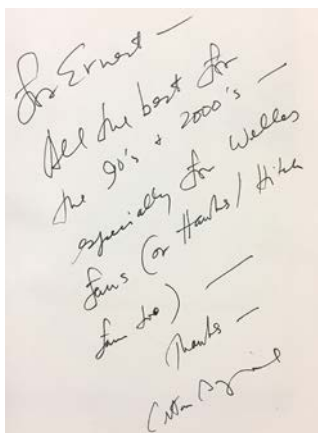 For Ernest —
All the best for
the 90's + 2000's —
especially for Welles
fans (or Hawks / Hitch
fans too) —
Thanks —